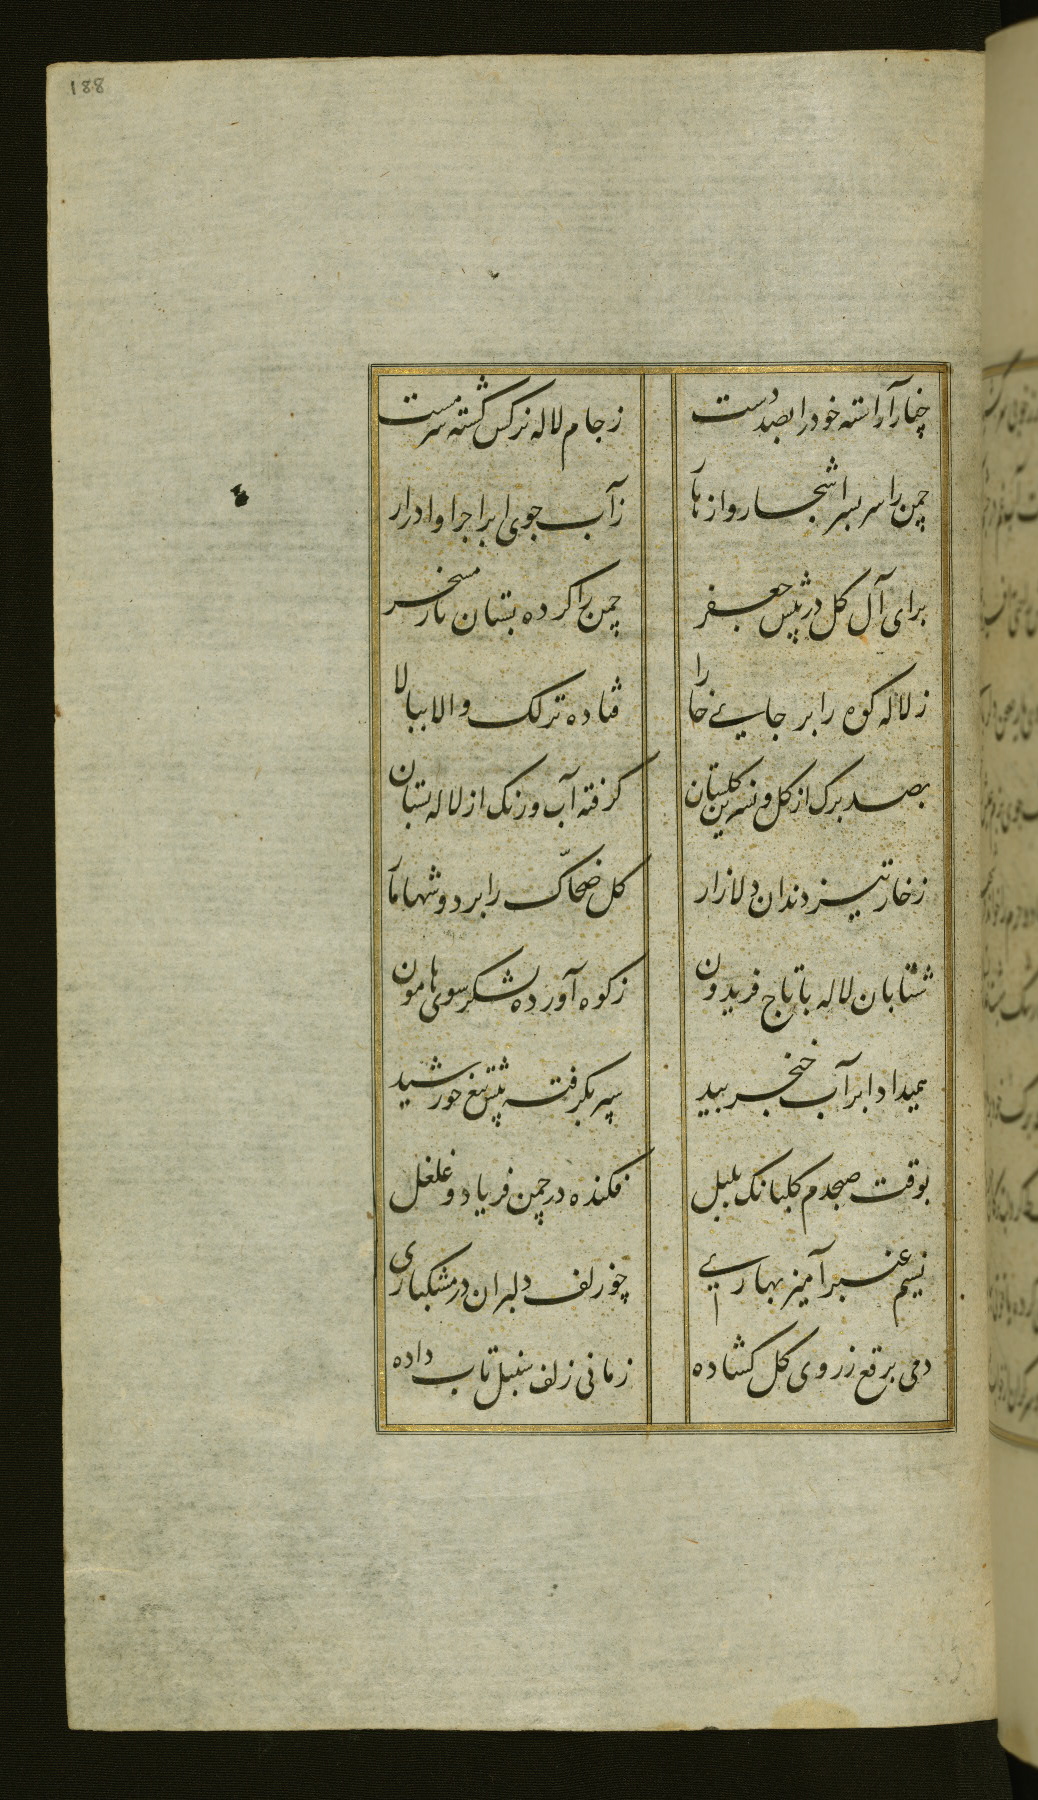 188
چنار آراسته خود را بصد دست ز جام لاله نرکس کشته سرمست
چمن را سر بسر اشجار و ازهار ز آب جوی ابر اجرا و ادرار
برای آل کل در پیش جعفر چمن را کرده بستان مسخر
ز لاله کوه را بر جای خارا فتاده ترلک والا ببالا
بصد برک از کل و نسرین کلستان کرفته آب و رنک از لاله بستان
ز خار تیز دندان دلازار کل ضحاک را بر دوشها مار
شتابان لاله با تاج فریدون ز کوه آورده لشکر سوی هامون
همیداد ابر آب خنجر بید سپر بکرفته پیش تیغ خورشید
بوقت صبحدم کلبانک بلبل فکنده در چمن فریاد و غلغل
نسیم عنبر آمیز بهاری چو زلف دلبران در مشکباری
دمی برقع ز روی کل کشاده زمانی زلف سنبل تاب داده